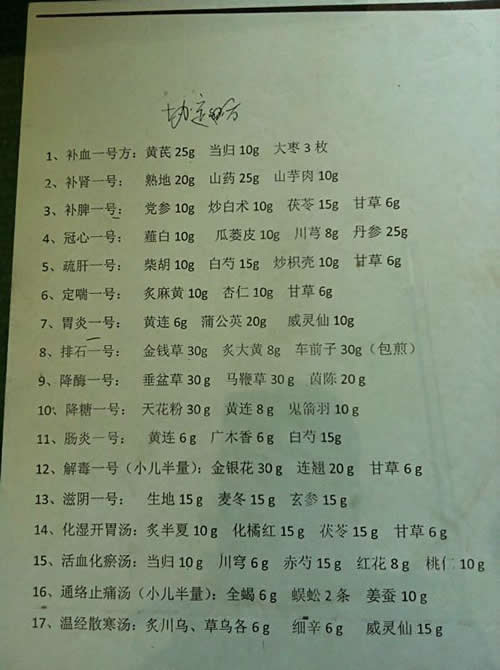 协定处方
1、补血一号方：黄芪 25g 当归 10g 大枣 3 枚
2、补肾一号： 熟地 20g 山药 25g 山芋肉 10g
3、补脾一号： 党参 10g 炒白术 10g 茯苓 15g 甘草 6g
4、冠心一号： 薤白 10g 瓜蒌皮 10g 川芎 8g 丹参 25g
5、疏肝一号： 柴胡 10g 白芍 15g 炒枳壳 10g 甘草 6g
6、定喘一号： 炙麻黄 10g 杏仁 10g 甘草 6g
7、胃炎一号： 黄连 6g 蒲公英 20g 威灵仙 10g
8、排石一号： 金钱草 30g 炙大黄 8g 车前子 30g（包煎）
9、降酶一号： 垂盆草 30 g 马鞭草 30 g 茵陈 20 g
10、降糖一号： 天花粉 30 g 黄连 8 g 鬼箭羽 10 g
11、肠炎一号： 黄连 6 g 广木香 6 g 白芍 15g
12、解毒一号（小儿半量）：金银花 30 g 连翘 20 g 甘草 6 g
13、滋阴一号： 生地 15 g 麦冬 15 g 玄参 15 g
14、化湿开胃汤：炙半夏 10 g 化橘红 15 g 茯苓 15 g 甘草 6 g
15、活血化瘀汤：当归 10 g 川穹 6 g 赤芍 15 g 红花 8 g 桃仁 10 g
16、通络止痛汤（小儿半量）：全蝎 6 g 蜈蚣 2 条 姜蚕 10 g
17、温经散寒汤：炙川乌、草乌各 6 g 细辛 6 g 威灵仙 15 g